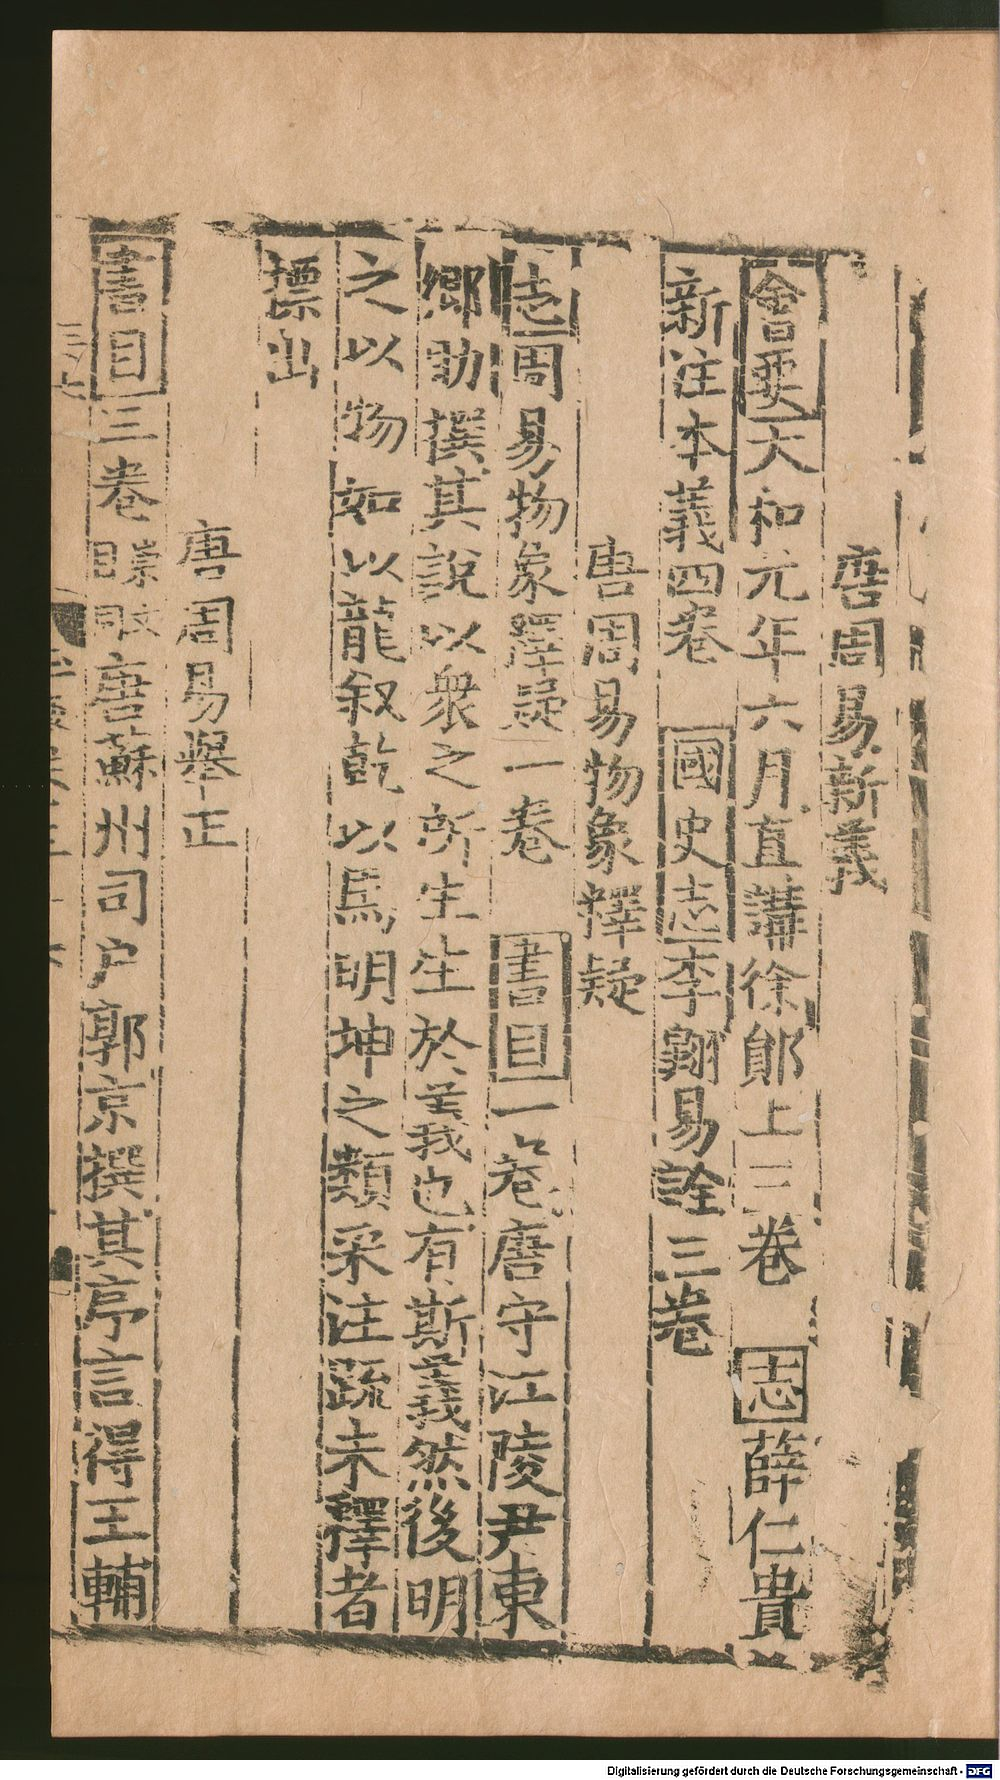 唐周易新義
會要大和元年六月直講徐鄖上三卷 志薛仁貴
新注本義四卷 國史志李翺易詮三卷
唐周易物象釋疑
志周易物象釋疑一卷 書目一卷唐守江陵尹東
鄉助撰其說以衆之所生生於義也有斯義然後明
之以物如以龍叙乾以馬明坤之類采注疏未釋者
標出
唐周易舉正
書目三卷 唐蘇州司户郭京撰其序言得王輔
Digitalisierung gefördert durch die Deutsche Forschungsgemeinschaft - DFG